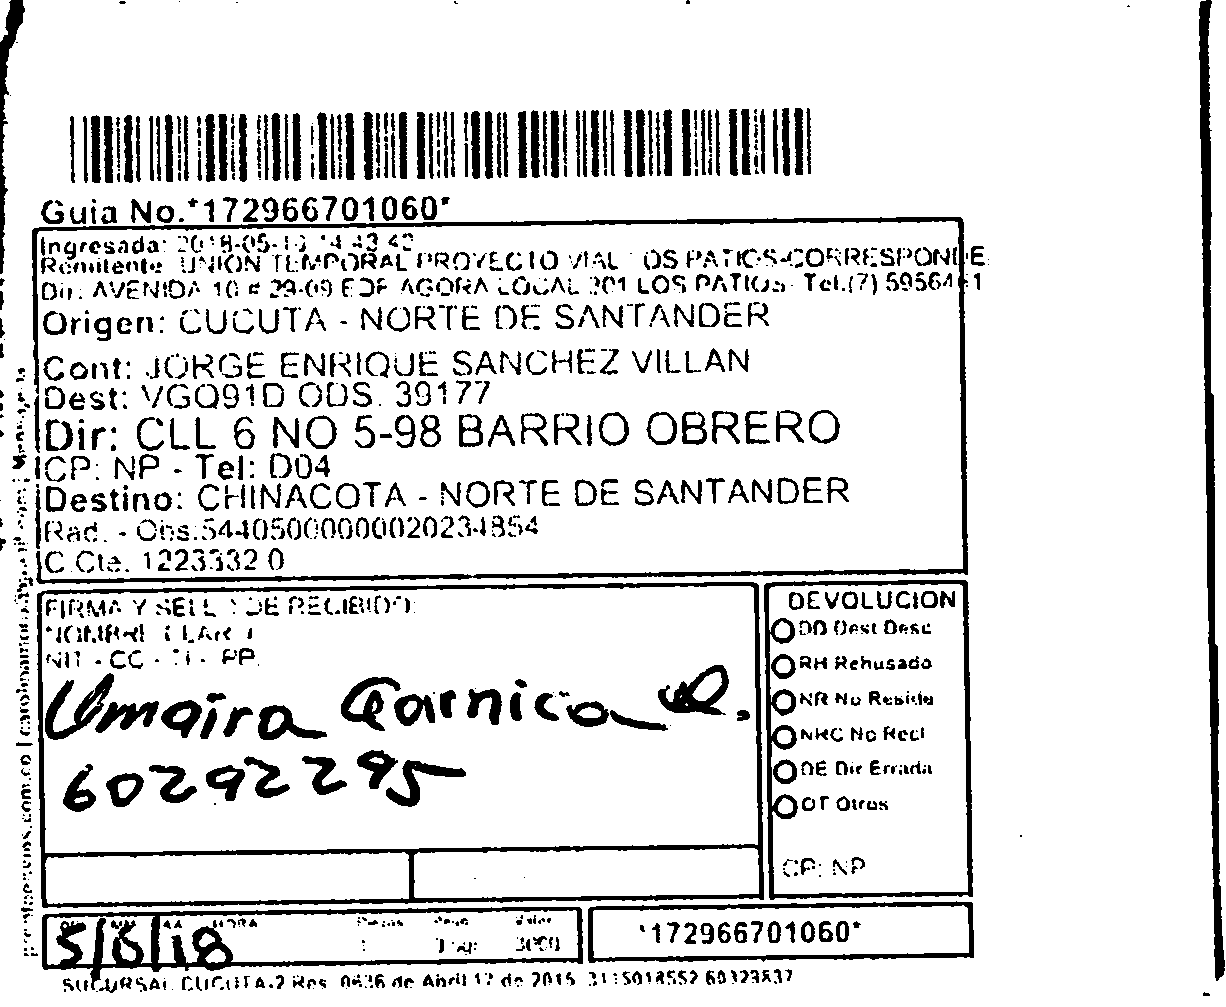 Guia No.*172966701060*
Ingresada: 2018-05-
Remitente: UNION TEMPORAL PROYECTO VIAL LOS PATIOS-CORRESPONDE
Dir: AVENIDA 10 # 29-09 EDF AGORA LOCAL 201 LOS PATIOS- Tel.(7)
Origen: CUCUTA - NORTE DE SANTANDER
Cont: JORGE ENRIQUE SANCHEZ VILLAN
Dest: VGQ91D ODS. 39177
Dir: CLL 6 NO 5-98 BARRIO OBRERO
CP: NP - Tel: D04
Destino: CHINACOTA - NORTE DE SANTANDER
Rad. - Obs:
C.Cte. 1223332 0
FIRMA Y SELLO DE RECIBIDO:
NOMBRE CLARO
NIT - CC - TI - PP.
Umaira Garnica
60292295
DEVOLUCION
DD Dest Desc
RH Rehusado
NR No Reside
NRC No Recl
DE Dir Errada
OT Otros
CP: NP
HORA Piezas Peso Valor
1 1 kg 3000
5/6/18
*172966701060*
SUCURSAL CUCUTA-2 Res. 0636 de Abril 17 de 2015